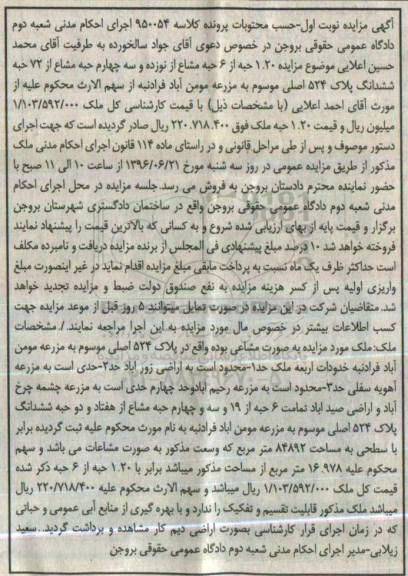 آگهی مزایده نوبت اول-حسب محتویات پرونده کلاسه ۹۵۰۰۵۴ اجرای احکام مدنی شعبه دوم
دادگاه عمومی حقوقی بروجن در خصوص دعوی آقای جواد سالخورده به طرفیت آقای محمد
حسین اعلایی موضوع مزایده ۱.۲۰ حبه از ۶ حبه مشاع از نوزده و سه چهارم حبه مشاع از ۷۲ حبه
ششدانگ پلاک ۵۲۴ اصلی موسوم به مزرعه مومن آباد فرادنبه از سهم الارث محکوم علیه از
مورث آقای احمد اعلایی (با مشخصات ذیل) با قیمت کارشناسی کل ملک ۱/۱۰۳/۵۹۲/۰۰۰
میلیون ریال و قیمت ۱.۲۰ حبه ملک فوق ۲۲۰.۷۱۸.۴۰۰ ریال صادر گردیده است که جهت اجرای
دستور موصوف و پس از طی مراحل قانونی و در راستای ماده ۱۱۴ قانون اجرای احکام مدنی ملک
مذکور از طریق مزایده عمومی در روز سه شنبه مورخ ۱۳۹۶/۰۶/۲۱ از ساعت ۱۰ الی ۱۱ صبح با
حضور نماینده محترم دادستان بروجن به فروش می رسد.جلسه مزایده در محل اجرای احکام
مدنی شعبه دوم دادگاه عمومی حقوقی بروجن واقع در ساختمان دادگستری شهرستان بروجن
برگزار و قیمت پایه از بهای ارزیابی شده شروع و به کسانی که بالاترین قیمت را پیشنهاد نمایند
فروخته خواهد شد ۱۰ درصد مبلغ پیشنهادی فی المجلس از برنده مزایده دریافت و نامبرده مکلف
است حداکثر ظرف یک ماه نسبت به پرداخت مابقی مبلغ مزایده اقدام نماید در غیر اینصورت مبلغ
واریزی اولیه پس از کسر هزینه مزایده به نفع صندوق دولت ضبط و مزایده تجدید خواهد
شد.متقاضیان شرکت در این مزایده در صورت تمایل میتوانند ۵ روز قبل از موعد مزایده جهت
کسب اطلاعات بیشتر در خصوص مال مورد مزایده به این اجرا مراجعه نمایند ./.مشخصات
ملک:ملک مورد مزایده به صورت مشاعی بوده واقع در پلاک ۵۲۴ اصلی موسوم به مزرعه مومن
آباد فرادنبه حدودات اربعه ملک حد۱-محدود است به اراضی زور آباد حد۲-حدی است به مزرعه
آهویه سفلی حد۳-محدود است به مزرعه رحیم آبادوحد چهارم حدی است به مزرعه چشمه چرخ
آباد و اراضی صید آباد تمامت ۶ حبه از ۱۹ و سه و چهارم حبه مشاع از هفتاد و دو حبه ششدانگ
پلاک ۵۲۴ اصلی موسوم به مزرعه مومن آباد فرادنبه به نام مورث محکوم علیه ثبت گردیده برابر
با سطحی به مساحت ۸۴۸۹۲ متر مربع که وسعت مذکور به صورت مشاعات می باشد و سهم
محکوم علیه ۱۶.۹۷۸ متر مربع از مساحت مذکور میباشد برابر با ۱.۲۰ حبه از ۶ حبه ذکر شده
قیمت کل ملک ۱/۱۰۳/۵۹۲/۰۰۰ ریال میباشد و سهم الارث محکوم علیه ۲۲۰/۷۱۸/۴۰۰ ریال
میباشد ملک مذکور قابلیت تقسیم و تفکیک را ندارد و با بهره گیری از منابع آبی عمومی و
که در زمان اجرای قرار کارشناسی بصورت اراضی دیم کار مشاهده و برداشت گردید..سعید
زیلابی-مدیر اجرای احکام مدنی شعبه دوم دادگاه عمومی حقوقی بروجن